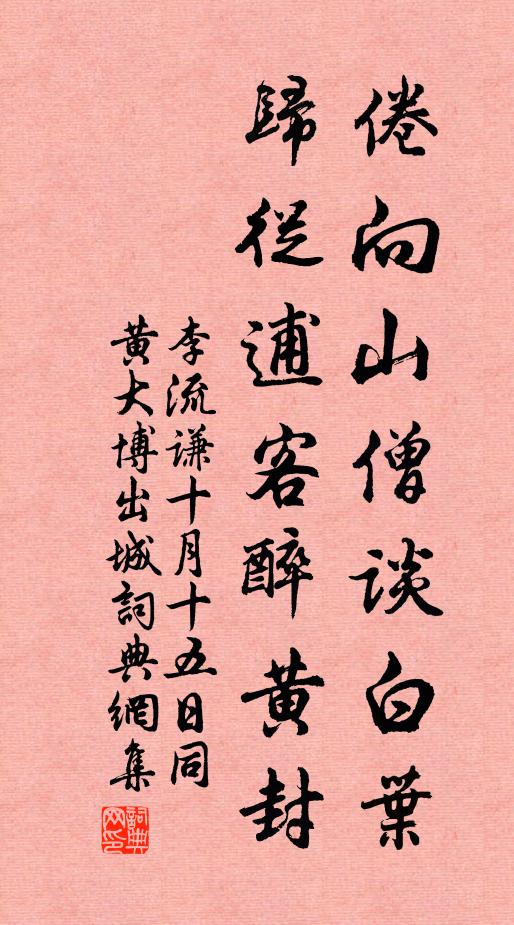 倦向山僧談白葉
歸從逋客醉黃封
李流谦十月十五日同
黃大博出城詞典網集
詞典网印